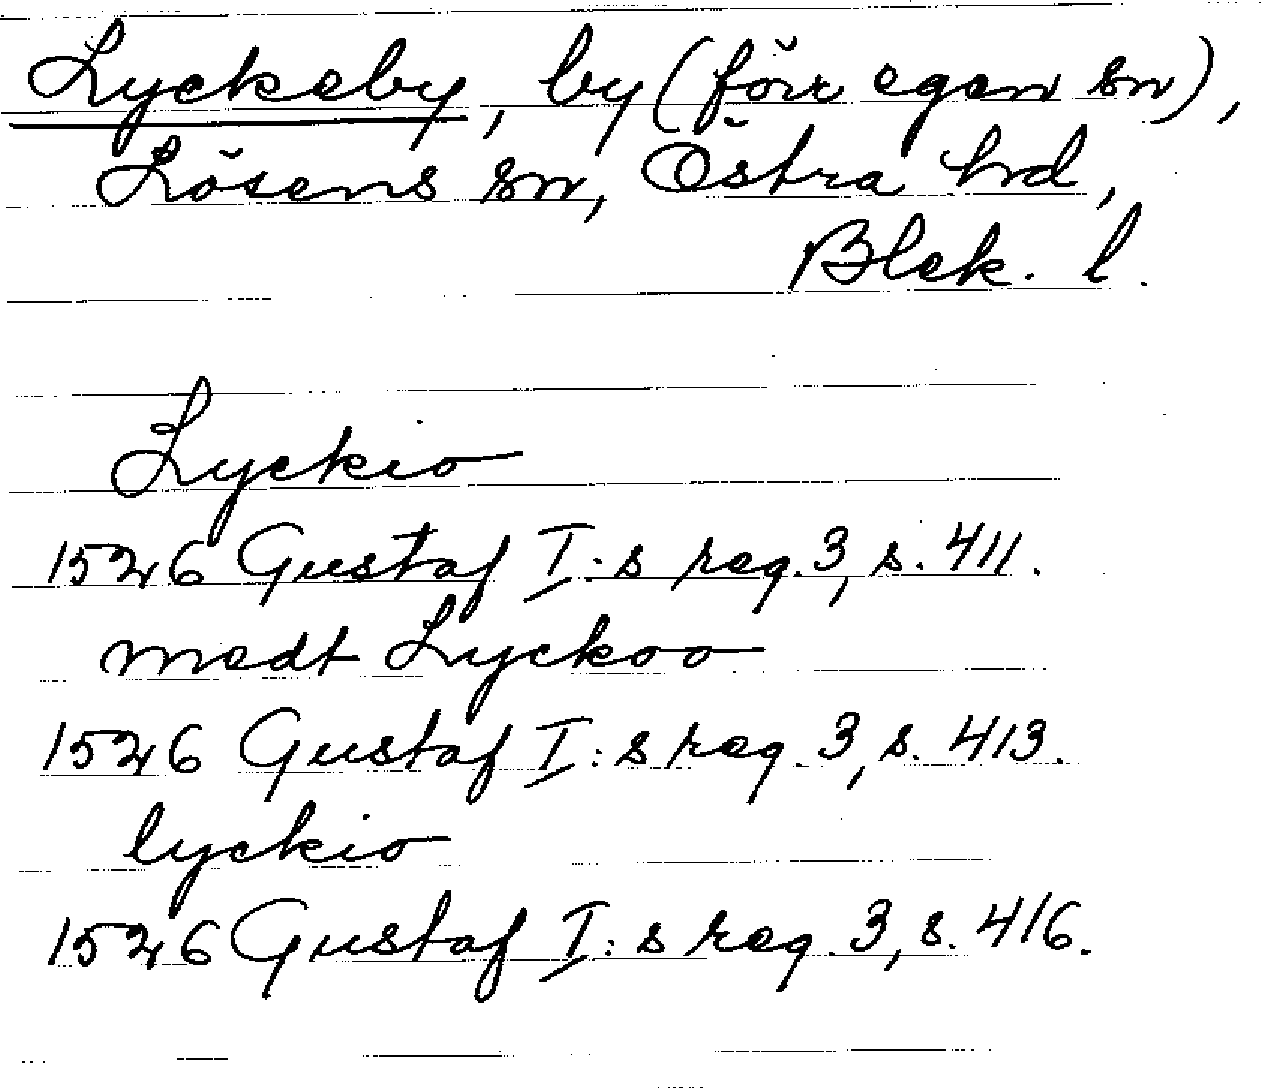 Lyckeby, by (förr egen sn),
Lösens sn, Östra hd,
Blek. l.
Lyckio
1526 Gustaf I:s reg. 3, s. 411.
medt Lyckoo
1526 Gustaf I:s reg. 3, s. 413.
lyckio
1526 Gustaf I:s reg. 3, s. 416.